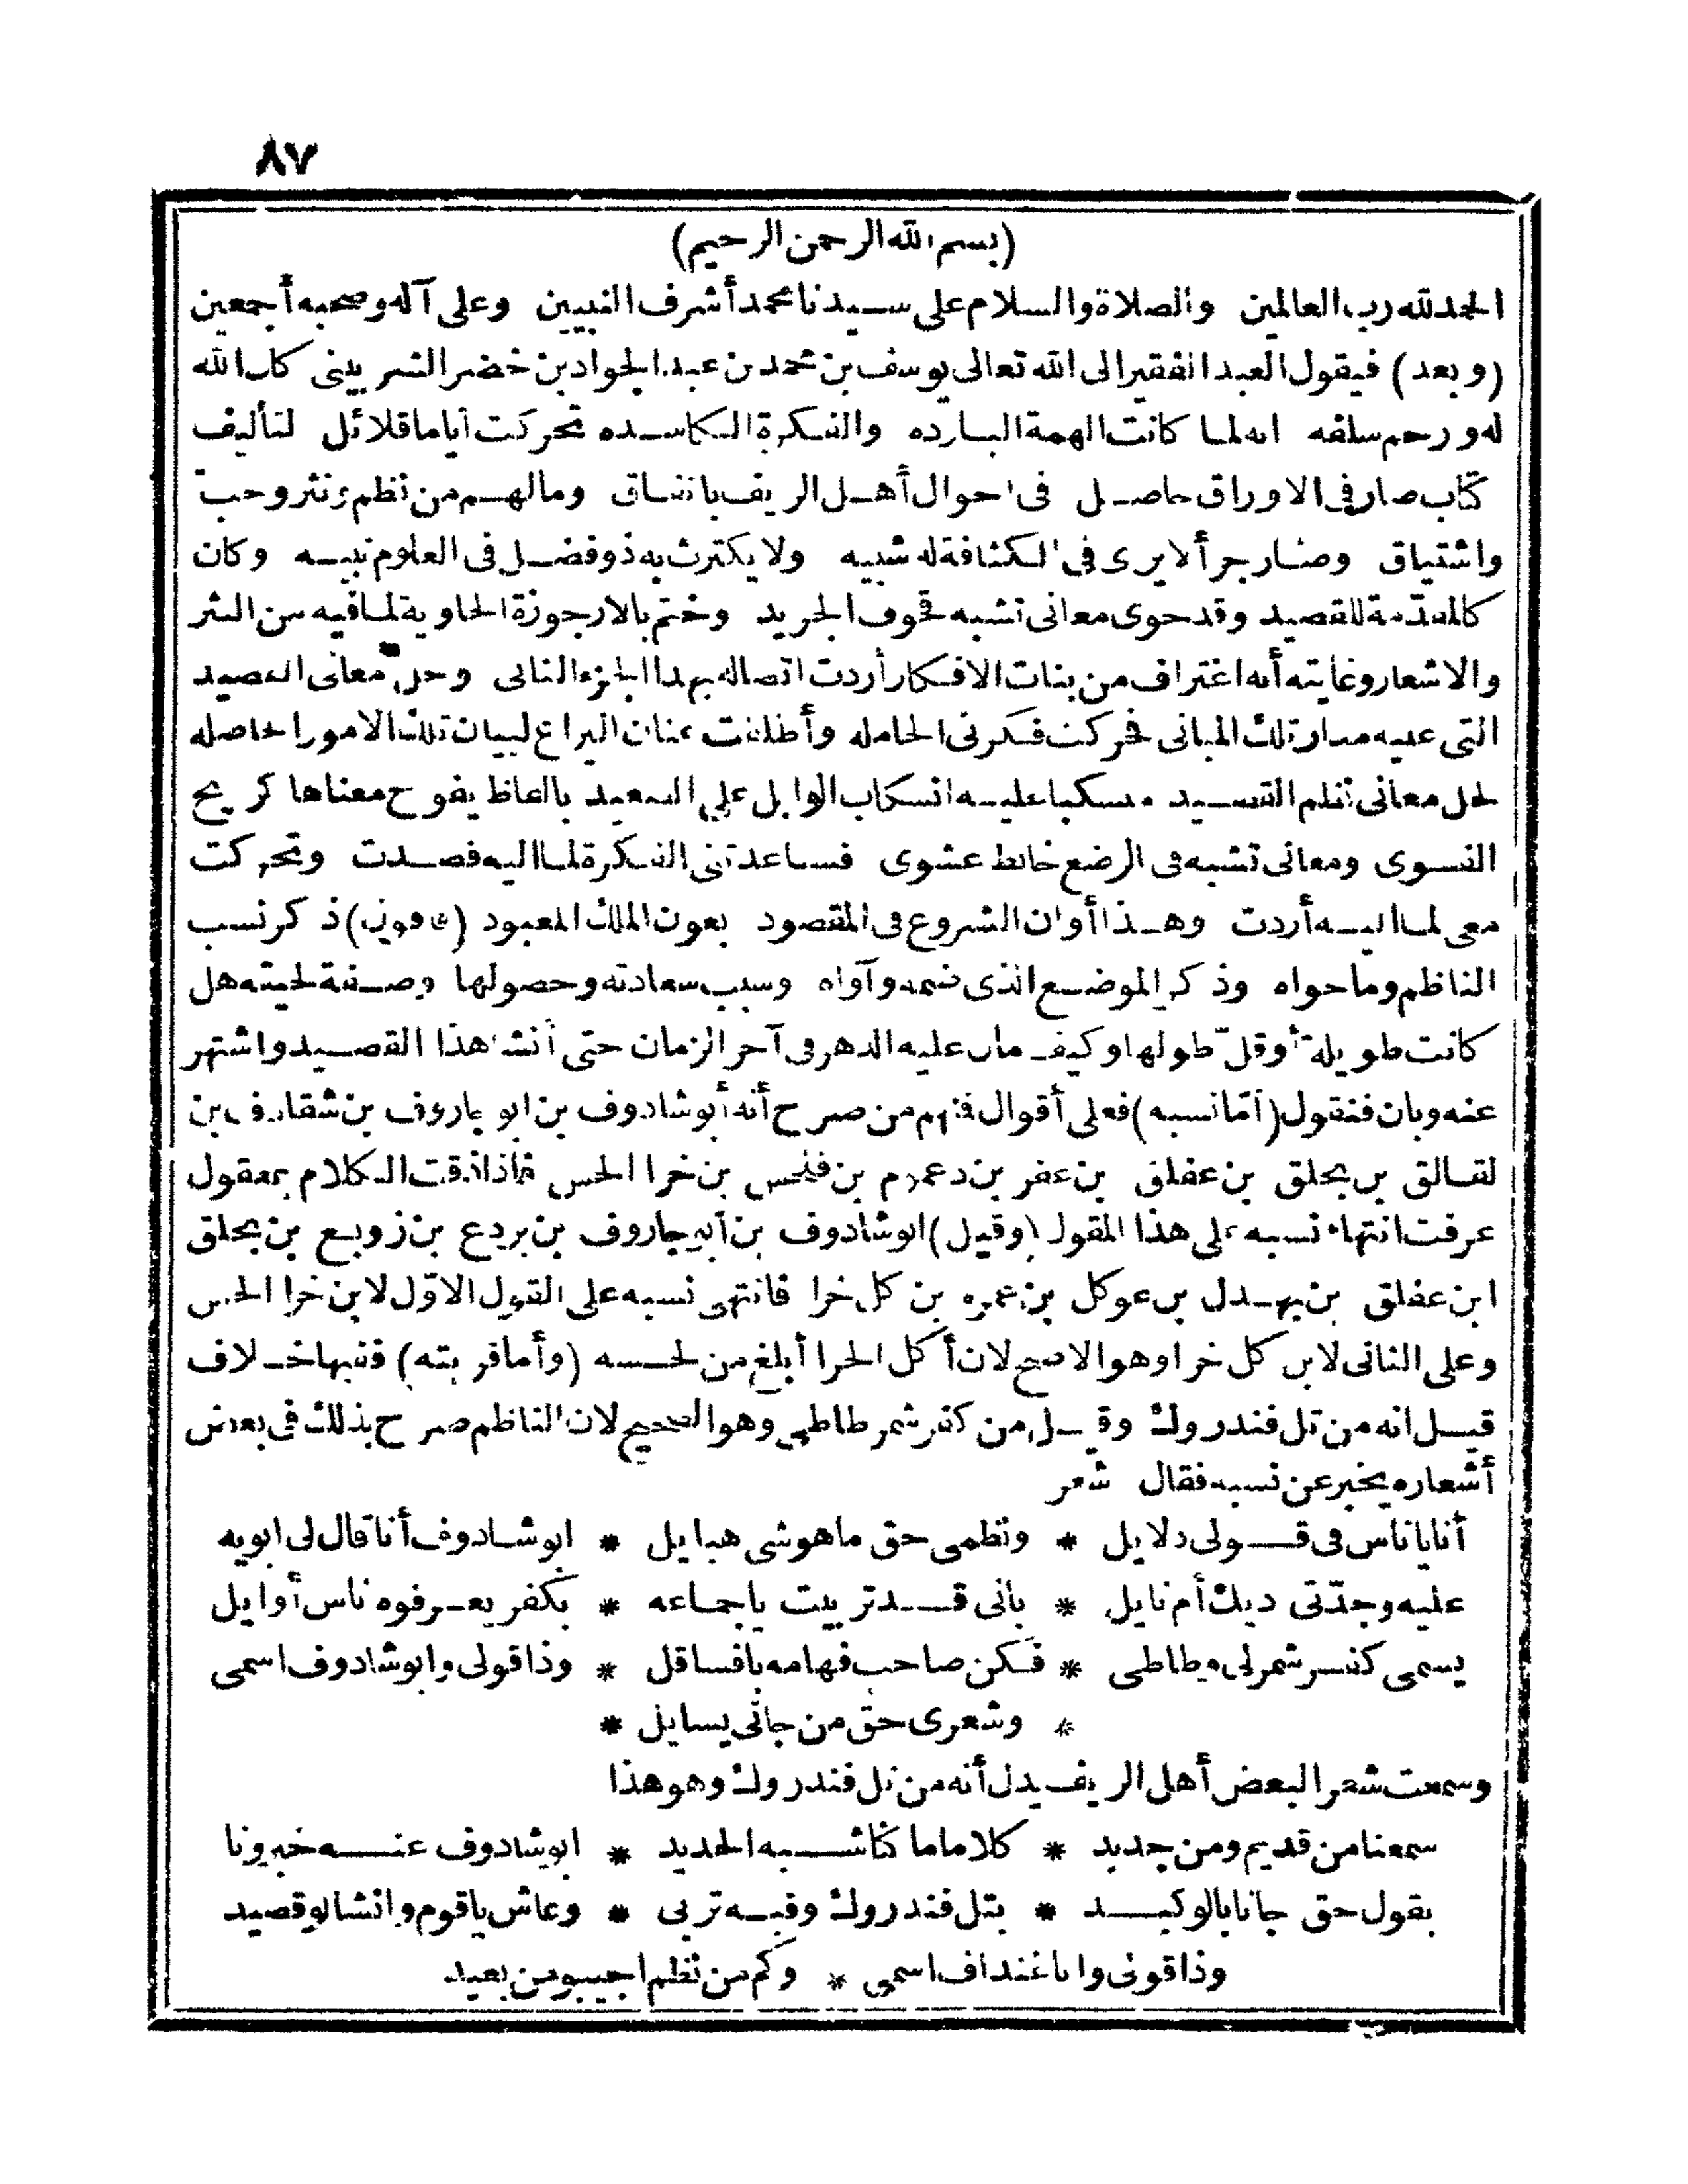 ٨٧
(بسم الله الرحمن الرحيم)
الحمد لله رب العالمين والصلاة والسلام على سيدنا محمد أشرف النبيين وعلى آله وصحبه أجمعين
(وبعد) فيقول العبد الفقير الى الله تعالى يوسف بن محمد بن عبد الجواد بن خضر الشربينى كان الله
له ورحم سلفه انه لما كانت الهمة البارده والفكرة الكاسده تحركت أياما قلائل لتأليف
كتاب صار فى الاوراق حاصل فى احوال أهل الريف باتفاق ومالهم من نظم ونثر وحب
واشتياق وصار جرأ لا يرى فى الكثافة له شبيه ولا يكترث به ذو فضل فى العلوم نبيه وكان
كالمقدّمة للقصيد وقد حوى معانى تشبه قحوف الجريد وختم بالارجوزة الحاوية لما فيه من النثر
والاشعار وغايته أنه اغتراف من بنات الافكار أردت اتصاله بهذا الجزء الثانى وحل معانى القصيد
التى عليه مدار تلك المبانى فحركت فكرتى الخامله وأطلقت عنان اليراع لبيان تلك الامور الحاصله
لحل معانى نظم القصيد منسكبا عليه انسكاب الوابل على الصعيد بالفاظ يفوح معناها كريح
الفسوى ومعانى تشبه فى الرضع خائط عشوى فساعدتنى الفكرة لما اليه قصدت وتحركت
معى لما اليه أردت وهذا أوان الشروع فى المقصود بعون الملك المعبود ذكر نسب
الناظم وما حواه وذكر الموضع الذى ضمه وآواه وسبب سعادته وحصولها وصفة لحيته هل
كانت طويلة أو قلّ طولها وكيف مال عليه الدهر فى آخر الزمان حتى أنشا هذا القصيد واشتهر
عنه وبان فنقول (أمّا نسبه) فعلى أقوال فمنهم من صرح أنه أبو شادوف بن ابو جاروف بن شقادف بن
لقالق بن بحلق بن عفلق بن عفر بن دعموم بن فلحس بن خرا الحس فاذا ذقت الكلام بمعقول
عرفت انتهاء نسبه على هذا المقول (وقيل) ابو شادوف بن أبى جاروف بن بردع بن زوبع بن بحلق
ابن عفلق بن بهدل بن عوكل بن عمره بن كل خرا فانتهى نسبه على القول الاوّل لابن خرا الحس
وعلى الثانى لابن كل خرا وهو الاصح لان أكل الخرا أبلغ من لحسه (وأما قريته) ففيها خلاف
قيل انه من تل فندروك وقيل من كفر شمرطاطى وهو الصحيح لان الناظم صرح بذلك فى بعض
أشعاره يخبر عن نسبه فقال شعر
أنا يا ناس فى قولى دلايل * ونظمى حق ماهوشى هبايل * ابو شادوف أنا قال لى ابويه
عليه وجدّتى ديك أم نايل * بانى قد تربيت يا جماعه * بكفر يعرفوه ناس أوايل
يسمى كفر شمرلى وطاطى * فكن صاحب فهامه يا فساقل * وذا قولى وابو شادوف اسمى
* وشعرى حق من جانى يسايل *
وسمعت شعر البعض أهل الريف يدل أنه من تل فندروك وهو هذا
سمعنا من قديم ومن جديد * كلاما ما كنا شبه الحديد * ابو شادوف عنه خبرونا
بقول حق جانا بالوكيد * بتل فندروك وفيه تربى * وعاش يا قوم وانشا لو قصيد
وذا قولى وانا غنداف اسمى * وكم من نظم اجيبو من بعيد